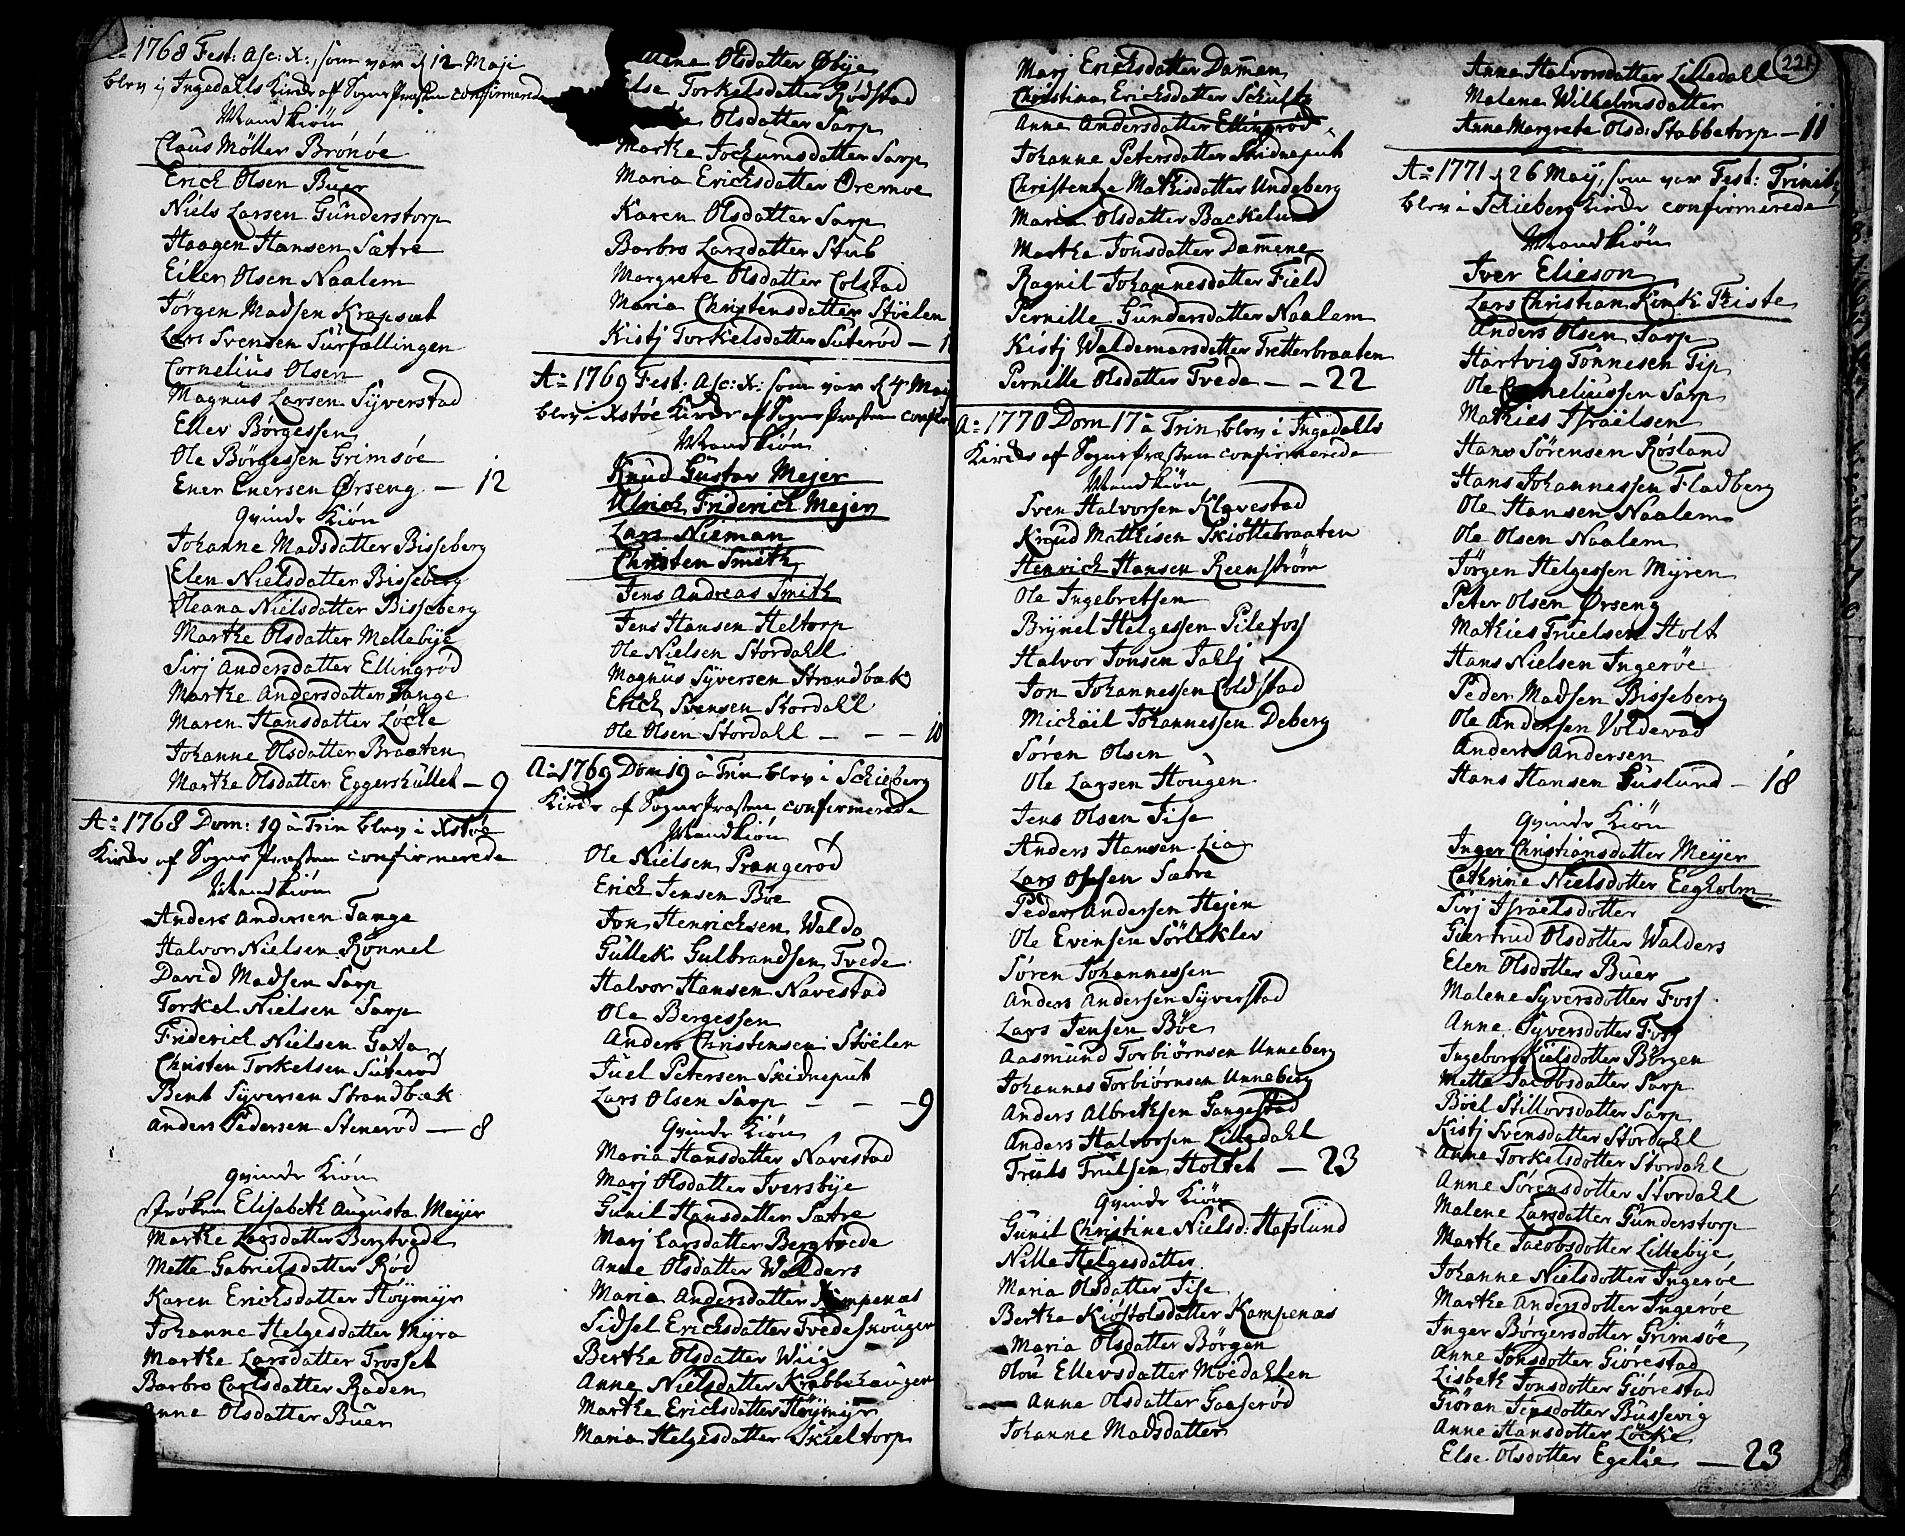 A: 1768 Fest: Asc: X: som var d 12 Maji
blev i Ingedalls Kircke af Sogne Præsten confirmerede
Mandkiön
Claus Möller Brönöe
Erick Olsen Buer
Niels Larsen Gunderstorp
Haagen Hansen Sætre
Eiler Olsen Naalem
Jörgen Madsen Krapsæt
Lars Svensen Surfællingen
Cornelius Olsen
Magnus Larsen Syverstad
Ellev Börgessen
Ole Börgessen Grimsöe
Ener Enersen Örseng — 12
Qvinde Kiön
Johanne Madsdatter Bisseberg
Elen Nielsdatter Bisseberg
Oleana Nielsdatter Bisseberg
Marthe Olsdatter Mellebye
Sirj Andersdatter Ellingröd
Marthe Andersdatter Tange
Maren Hansdatter Löcke
Johanne Olsdatter Braaten
Marthe Olsdatter Eggershullet — 9
A: 1768 Dom: 19 à Trin blev i Xstöe
Kircke af Sogne Præsten confirmerede
Mandkiön
Anders Andersen Tange
Halvor Nielsen Rönnel
David Madsen Sarp
Torkel Nielsen Sarp
Friderich Nielsen Gata
Christen Torkelsen Suteröd
Bent Syversen Strandbæk
Anders Pedersen Steneröd — 8
Qvinde Kiön
Fröken Elisabeth Augusta Meyer
Marthe Larsdatter Bergtvede
Mette Gabrielsdatter Röd
Karen Ericksdatter Höymyr
Johanne Helgesdatter Myra
Marthe Larsdatter Trosset
Barbro Carlsdatter Raden
Anne Olsdatter Buer
Olsdatter Öbye
Else Torkelsdatter Rödstad
Olsdatter Sarp
Marthe Jochumsdatter Sarp
Maria Ericksdatter Öremoe
Karen Olsdatter Sarp
Barbro Larsdatter Stub
Margrete Olsdatter Colstad
Maria Christensdatter Stöelen
Kistj Torkelsdatter Suteröd —
A: 1769 Fest: Asc: X: som var d 4 Maj
blev i Xstöe Kircke af Sogne Præsten
Mandkiön
Knud Gustav Mejer
Ulrich Friderich Mejer
Lars Nieman
Christen Smith
Jens Andreas Smith
Jens Hansen Heltorp
Ole Nielsen Stordahl
Magnus Syversen Strandbæk
Erick Svensen Stordahl
Ole Olsen Stordahl — — — 10
A: 1769 Dom 19 à Trin blev i Schieberg
Kircke af Sogne Præsten confirmerede
Mandkiön
Ole Nielsen Prangeröd
Erick Jensen Böe
Jon Henricksen Walda
Gullek Gulbrandsen Tvede
Halvor Hansen Navestad
Ole Bergessen
Anders Christensen Stöelen
Juel Petersen Skidneput
Lars Olsen Sarp — — — 9
Qvinde Kiön
Maria Hansdatter Navestad
Marj Olsdatter Iversbye
Gunil Hansdatter Sætre
Marj Larsdatter Bergtvede
Anne Olsdatter Walders
Maria Andersdatter Kampenæs
Sidsel Ericksdatter Tvedeskougen
Berthe Olsdatter Wiig
Anne Nielsdatter Krabbehaugen
Marthe Ericksdatter Höymyr
Maria Helgesdatter Skieltorp
Marj Ericksdatter Dammen
Christina Ericksdatter Schultz
Anne Andersdatter Ellingröd
Johanne Petersdatter Skidneput
Christentze Mathisdatter Undeberg
Maria Olsdatter Backelund
Marthe Jonsdatter Dammene
Ragnil Johannesdatter Field
Pernille Gundersdatter Naalem
Kistj Waldemarsdatter Tretterbraaten
Pernille Olsdatter Tvede — — 22
A: 1770 Dom 17 à Trin blev i Ingedalls
Kircke af Sogne Præsten confirmerede
Mandkiön
Sven Halvorsen Klavestad
Knud Mathisen Skiöttebraaten
Henrich Hansen Reenström
Ole Ingebretsen
Brynel Helgessen Pilefoss
Halvor Jonsen Jahlj
Jon Johannessen Coldstad
Michäil Johannessen Deberg
Sören Olsen
Ole Larsen Hougen
Jens Olsen Tise
Anders Hansen Lia
Lars Olsen Sætre
Peder Andersen Hejen
Ole Evensen Sörlekler
Sören Johannessen
Anders Andersen Syverstad
Lars Jensen Böe
Aasmund Torbiörnsen Unneberg
Johannes Torbiörnsen Unneberg
Anders Albretksen Gangestad
Anders Halvorsen Lilledahl
Truls Trulsen Holtet — 23
Qvinde Kiön
Gunil Christine Nielsd: Hafslund
Nille Helgesdatter
Maria Olsdatter Tise
Berthe Kiöstolsdatter Kampenæs
Maria Olsdatter Börgen
Olou Ellevsdatter Moedahlen
Anne Olsdatter Gaaseröd
Johanne Madsdatter
221
Anne Halvorsdatter Lilledall
Malene Wilhelmsdatter
Anne Margrete Olsd: Stabbetorp — 11
A: 1771 d 26 Maij, som var Fest: Trinit
blev i Schieberg Kircke confirmerede
Mandkiön
Iver Elieson
Lars Christian Thiste
Anders Olsen Sarp
Hartvig Tönnesen Tip
Ole Corneliussen Sarp
Mathies Israelsen
Hans Sörensen Rösland
Hans Johannessen Fladberg
Ole Hansen Naalem
Ole Olsen Naalem
Jörgen Helgessen Myren
Peter Olsen Örseng
Mathies Truelsen Holt
Hans Nielsen Ingeröe
Peder Madsen Bisseberg
Ole Andersen Volderöd
Anders Andersen
Hans Hansen Guslund — 18
Qvinde Kiön
Inger Christiansdatter Meyer
Cathrine Nielsdotter Eegholm
Sirj Israelsdotter
Giertrud Olsdotter Walders
Elen Olsdotter Buer
Malene Syversdotter Foss
Anne Syversdotter Foss
Ingeborg Kielsdotter Börgen
Mette Jacobsdatter Sarp
Böel Stillovsdatter Sarp
Kistj Svensdatter Stordahl
Anne Torkelsdatter Stordahl
Anne Sörensdotter Stordahl
Malene Larsdatter Gunderstorp
Marthe Jacobsdotter Lillebye
Johanne Nielsdotter Ingeröe
Marthe Andersdotter Ingeröe
Inger Börgersdotter Grimsöe
Anne Jonsdotter Giörestad
Lisbeth Jonsdotter Giörestad
Giöran Jensdotter Bussevig
Anne Hansdotter Löcke
Else Olsdotter Egelie — 23